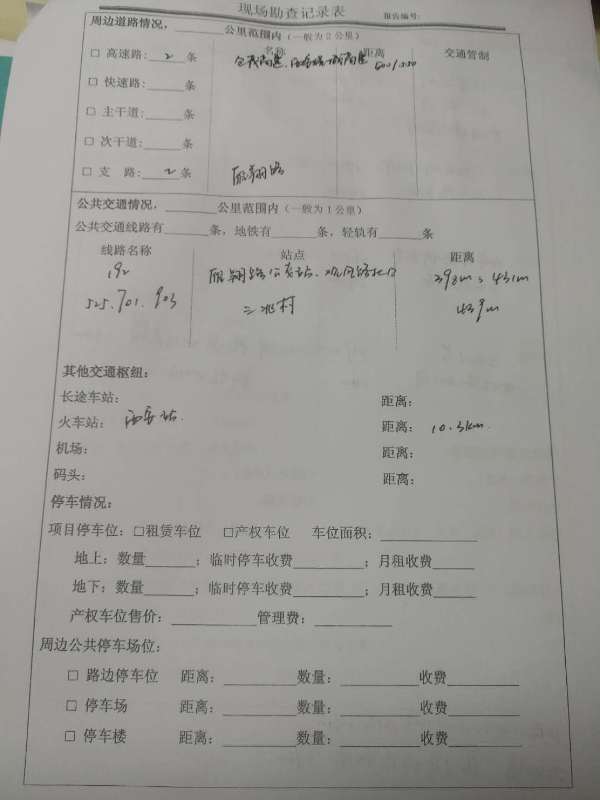 现场勘查记录表 报告编号:
周边道路情况,______公里范围内（一般为2公里）
名称 距离 交通管制
□ 高速路: 2 条
□ 快速路:______条
□ 主干道:______条
□ 次干道:______条
□ 支 路: 2 条 雁翔路
公共交通情况,______公里范围内（一般为1公里）
公共交通线路有______条，地铁有______条，轻轨有______条
线路名称 站点 距离
192 雁翔路公交站、 398m、431m
525.701.903 三兆村 439m
其他交通枢纽:
长途车站: 距离:
火车站: 西安站. 距离: 10.3km.
机场: 距离:
码头: 距离:
停车情况:
项目停车位: □租赁车位 □产权车位 车位面积:____________
地上: 数量______; 临时停车收费________; 月租收费_____
地下: 数量______; 临时停车收费________; 月租收费_____
产权车位售价:__________管理费:__________
周边公共停车场位:
□ 路边停车位 距离:_________数量:_________收费_________
□ 停车场 距离:_________数量:_________收费_________
□ 停车楼 距离:_________数量:_________收费_________